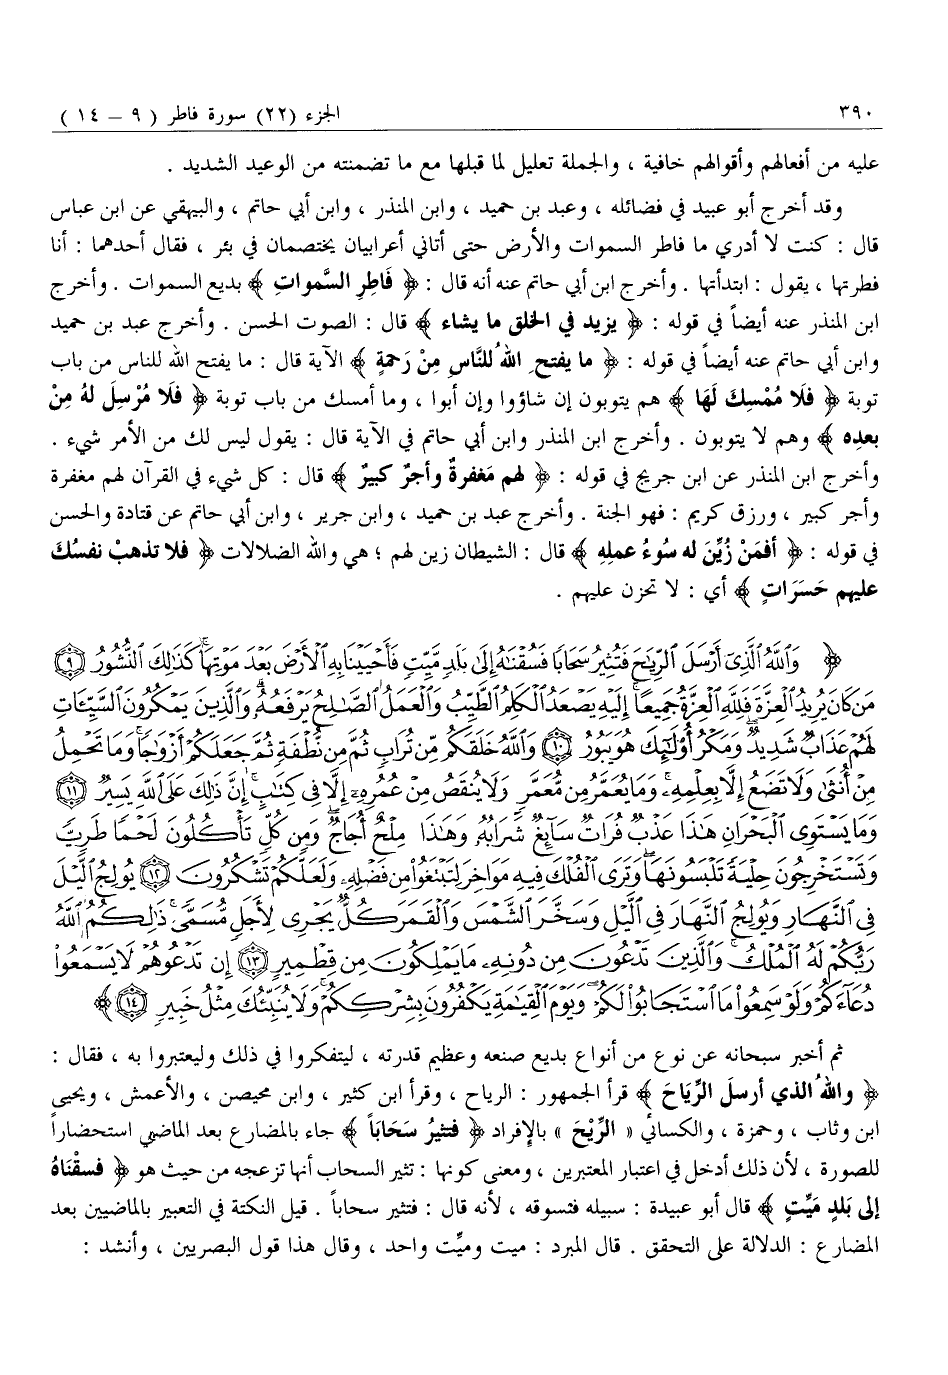 ٣٩٠ الجزء (٢٢) سورة فاطر ( ٩ – ١٤ )
عليه من أفعالهم وأقوالهم خافية ، والجملة تعليل لما قبلها مع ما تضمنته من الوعيد الشديد .
وقد أخرج أبو عبيد في فضائله ، وعبد بن حميد ، وابن المنذر ، وابن أبي حاتم ، والبيهقي عن ابن عباس
قال : كنت لا أدري ما فاطر السموات والأرض حتى أتاني أعرابيان يختصمان في بئر ، فقال أحدهما : أنا
فطرتها ، يقول : ابتدأتها . وأخرج ابن أبي حاتم عنه أنه قال : ﴿ فَاطِرِ السَّمواتِ ﴾ بديع السموات . وأخرج
ابن المنذر عنه أيضاً في قوله : ﴿ يزيد في الخلق ما يشاء ﴾ قال : الصوت الحسن . وأخرج عبد بن حميد
وابن أبي حاتم عنه أيضاً في قوله : ﴿ ما يفتحِ اللهُ للنَّاسِ مِنْ رَحمةٍ ﴾ الآية قال : ما يفتح الله للناس من باب
توبة ﴿ فَلَا مُمْسِكَ لَهَا ﴾ هم يتوبون إن شاؤوا وإن أبوا ، وما أمسك من باب توبة ﴿ فَلَا مُرْسِلَ لهُ مِنْ
بعدِه ﴾ وهم لا يتوبون . وأخرج ابن المنذر وابن أبي حاتم في الآية قال : يقول ليس لك من الأمر شيء .
وأخرج ابن المنذر عن ابن جريج في قوله : ﴿ لهم مَغفرةٌ وأجرٌ كبيرٌ ﴾ قال : كل شيء في القرآن لهم مغفرة
وأجر كبير ، ورزق كريم : فهو الجنة . وأخرج عبد بن حميد ، وابن جرير ، وابن أبي حاتم عن قتادة والحسن
في قوله : ﴿ أفمَنْ زُيِّنَ له سُوءُ عملِهِ ﴾ قال : الشيطان زين لهم ؛ هي والله الضلالات ﴿ فلا تذهبْ نفسُكَ
عليهم حَسَرَاتٍ ﴾ أي : لا تحزن عليهم .
﴿ وَاللَّهُ الَّذِي أَرْسَلَ الرِّيَاحَ فَتُثِيرُ سَحَابًا فَسُقْنَاهُ إِلَى بَلَدٍ مَّيِّتٍ فَأَحْيَيْنَا بِهِ الْأَرْضَ بَعْدَ مَوْتِهَا كَذَلِكَ النُّشُورُ ٩
مَن كَانَ يُرِيدُ الْعِزَّةَ فَلِلَّهِ الْعِزَّةُ جَمِيعًا إِلَيْهِ يَصْعَدُ الْكَلِمُ الطَّيِّبُ وَالْعَمَلُ الصَّالِحُ يَرْفَعُهُ وَالَّذِينَ يَمْكُرُونَ السَّيِّئَاتِ
لَهُمْ عَذَابٌ شَدِيدٌ وَمَكْرُ أُوْلَئِكَ هُوَ يَبُورُ ١٠ وَاللَّهُ خَلَقَكُم مِّن تُرَابٍ ثُمَّ مِن نُّطْفَةٍ ثُمَّ جَعَلَكُمْ أَزْوَاجًا وَمَا تَحْمِلُ
مِنْ أُنثَى وَلَا تَضَعُ إِلَّا بِعِلْمِهِ وَمَا يُعَمَّرُ مِن مُّعَمَّرٍ وَلَا يُنقَصُ مِنْ عُمُرِهِ إِلَّا فِي كِتَابٍ إِنَّ ذَلِكَ عَلَى اللَّهِ يَسِيرٌ ١١
وَمَا يَسْتَوِي الْبَحْرَانِ هَذَا عَذْبٌ فُرَاتٌ سَائِغٌ شَرَابُهُ وَهَذَا مِلْحٌ أُجَاجٌ وَمِن كُلٍّ تَأْكُلُونَ لَحْمًا طَرِيًّا
وَتَسْتَخْرِجُونَ حِلْيَةً تَلْبَسُونَهَا وَتَرَى الْفُلْكَ فِيهِ مَوَاخِرَ لِتَبْتَغُوا مِن فَضْلِهِ وَلَعَلَّكُمْ تَشْكُرُونَ ١٢ يُولِجُ الَّيْلَ
فِي النَّهَارِ وَيُولِجُ النَّهَارَ فِي الَّيْلِ وَسَخَّرَ الشَّمْسَ وَالْقَمَرَ كُلٌّ يَجْرِي لِأَجَلٍ مُّسَمًّى ذَلِكُمُ اللَّهُ
رَبُّكُمْ لَهُ الْمُلْكُ وَالَّذِينَ تَدْعُونَ مِن دُونِهِ مَا يَمْلِكُونَ مِن قِطْمِيرٍ ١٣ إِن تَدْعُوهُمْ لَا يَسْمَعُوا
دُعَاءَكُمْ وَلَوْ سَمِعُوا مَا اسْتَجَابُوا لَكُمْ وَيَوْمَ الْقِيَامَةِ يَكْفُرُونَ بِشِرْكِكُمْ وَلَا يُنَبِّئُكَ مِثْلُ خَبِيرٍ ١٤ ﴾
ثم أخبر سبحانه عن نوع من أنواع بديع صنعه وعظيم قدرته ، ليتفكروا في ذلك وليعتبروا به ، فقال :
﴿ واللهُ الذي أرسلَ الرِّيَاحَ ﴾ قرأ الجمهور : الرياح ، وقرأ ابن كثير ، وابن محيصن ، والأعمش ، ويحيى
ابن وثاب ، وحمزة ، والكسائي « الرِّيْحَ » بالإفراد ﴿ فتثيرُ سَحَاباً ﴾ جاء بالمضارع بعد الماضي استحضاراً
للصورة ، لأن ذلك أدخل في اعتبار المعتبرين ، ومعنى كونها : تثير السحاب أنها تزعجه من حيث هو ﴿ فسقْنَاهُ
إلى بَلدٍ مَيِّتٍ ﴾ قال أبو عبيدة : سبيله فتسوقه ، لأنه قال : فتثير سحاباً . قيل النكتة في التعبير بالماضيين بعد
المضارع : الدلالة على التحقق . قال المبرد : ميت وميِّت واحد ، وقال هذا قول البصريين ، وأنشد :